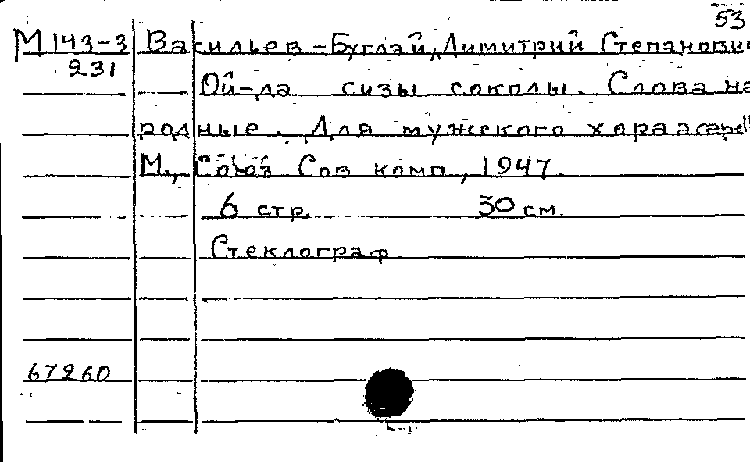 53
М 143-3 Васильев-Буглай, Димитрий Степанович
231
Ой-да сизы соколы. Слова на
родные. Для мужского хора acapell
М., Союз Сов комп, 1947.
6 стр. 30 см.
Стеклограф.
67260